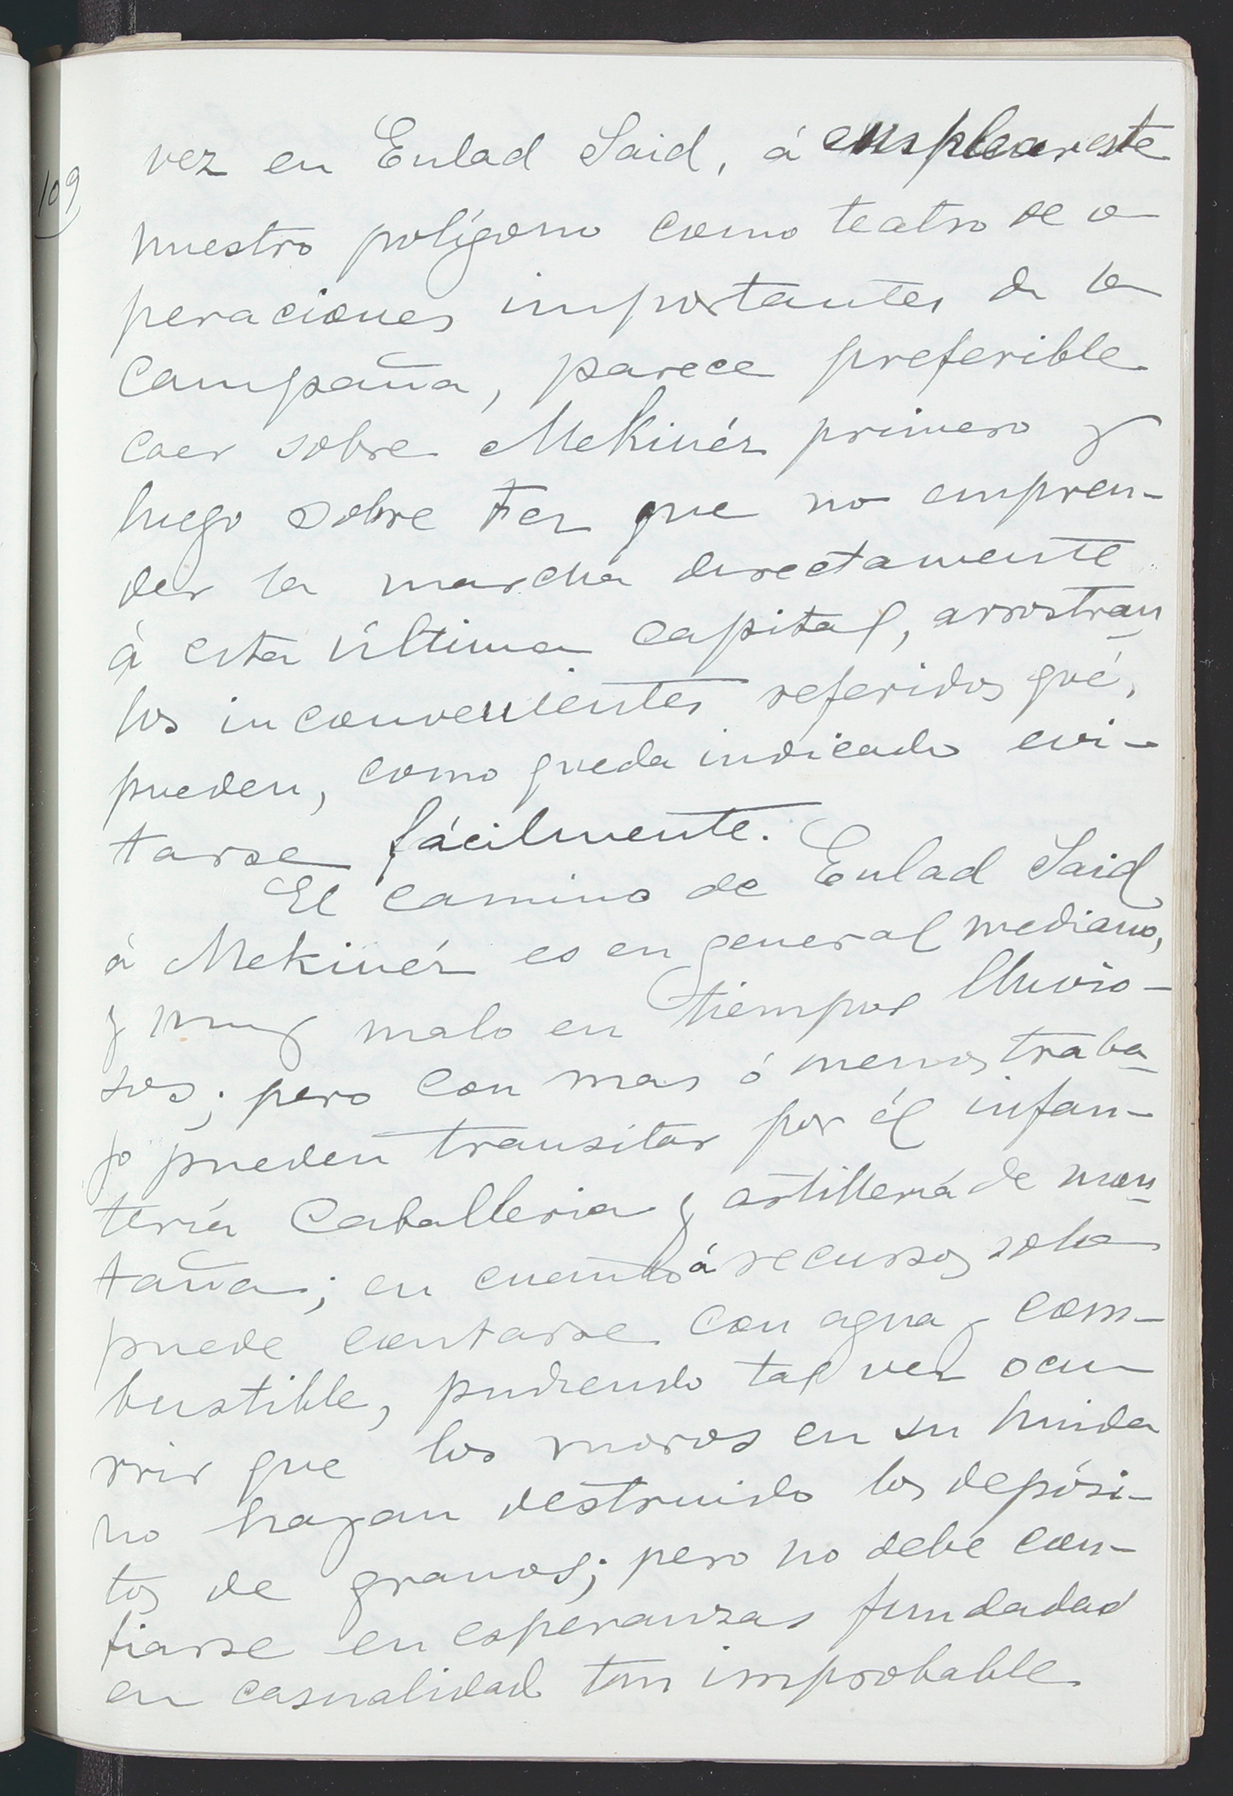 109
vez en Eulad Said, á emplear este
nuestro polígono como teatro de o-
peraciones importantes de la
campaña, parece preferible
caer sobre Mekinéz primero y
luego sobre Fez que no empren-
der la marcha directamente
á esta última capital, arrostran
los inconvenientes referidos qué,
pueden, como queda indicado evi-
tarse fácilmente.
El camino de Eulad Said
á Mekinéz es en general mediano,
y muy malo en tiempos lluvio-
sos; pero con mas ó menos traba-
jo pueden transitar por él infan-
tería Caballeria y artillería de mon-
taña; en cuanto á recursos solo
puede contarse con agua y com-
bustible, pudiendo tal vez ocu-
rrir que los moros en su huida
no hayan destruido los depósi-
tos de granos; pero no debe con-
fiarse en esperanzas fundadas
en casualidad tan improbable